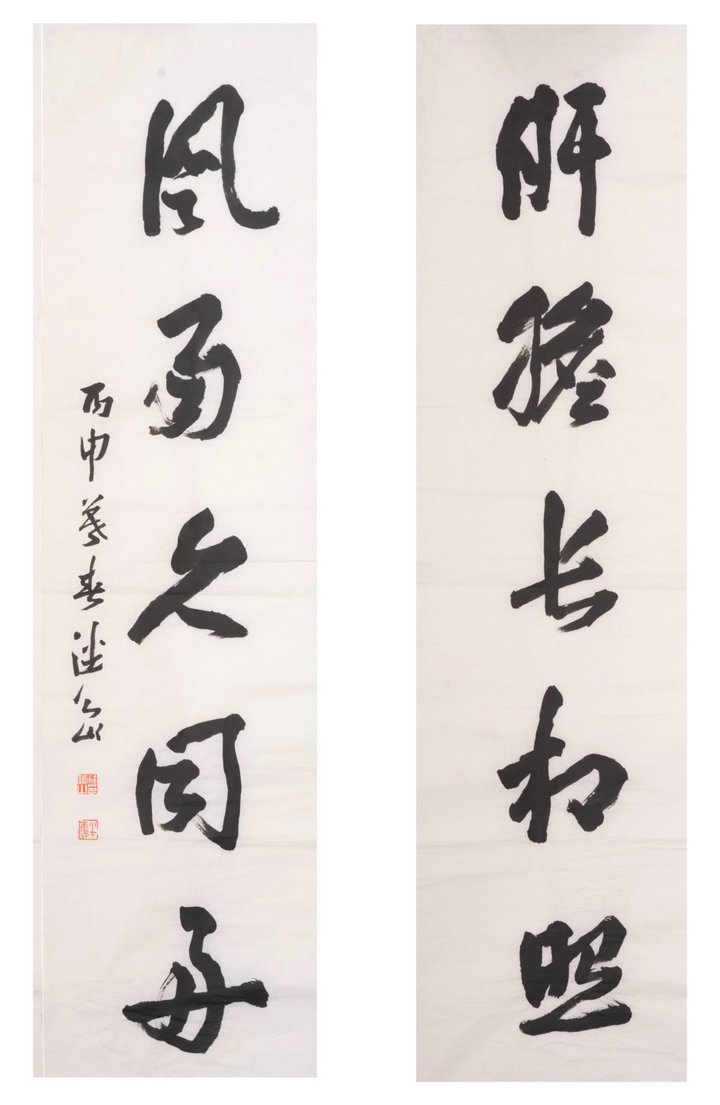 肝胆长相照
风雨久同舟
丙申暮春